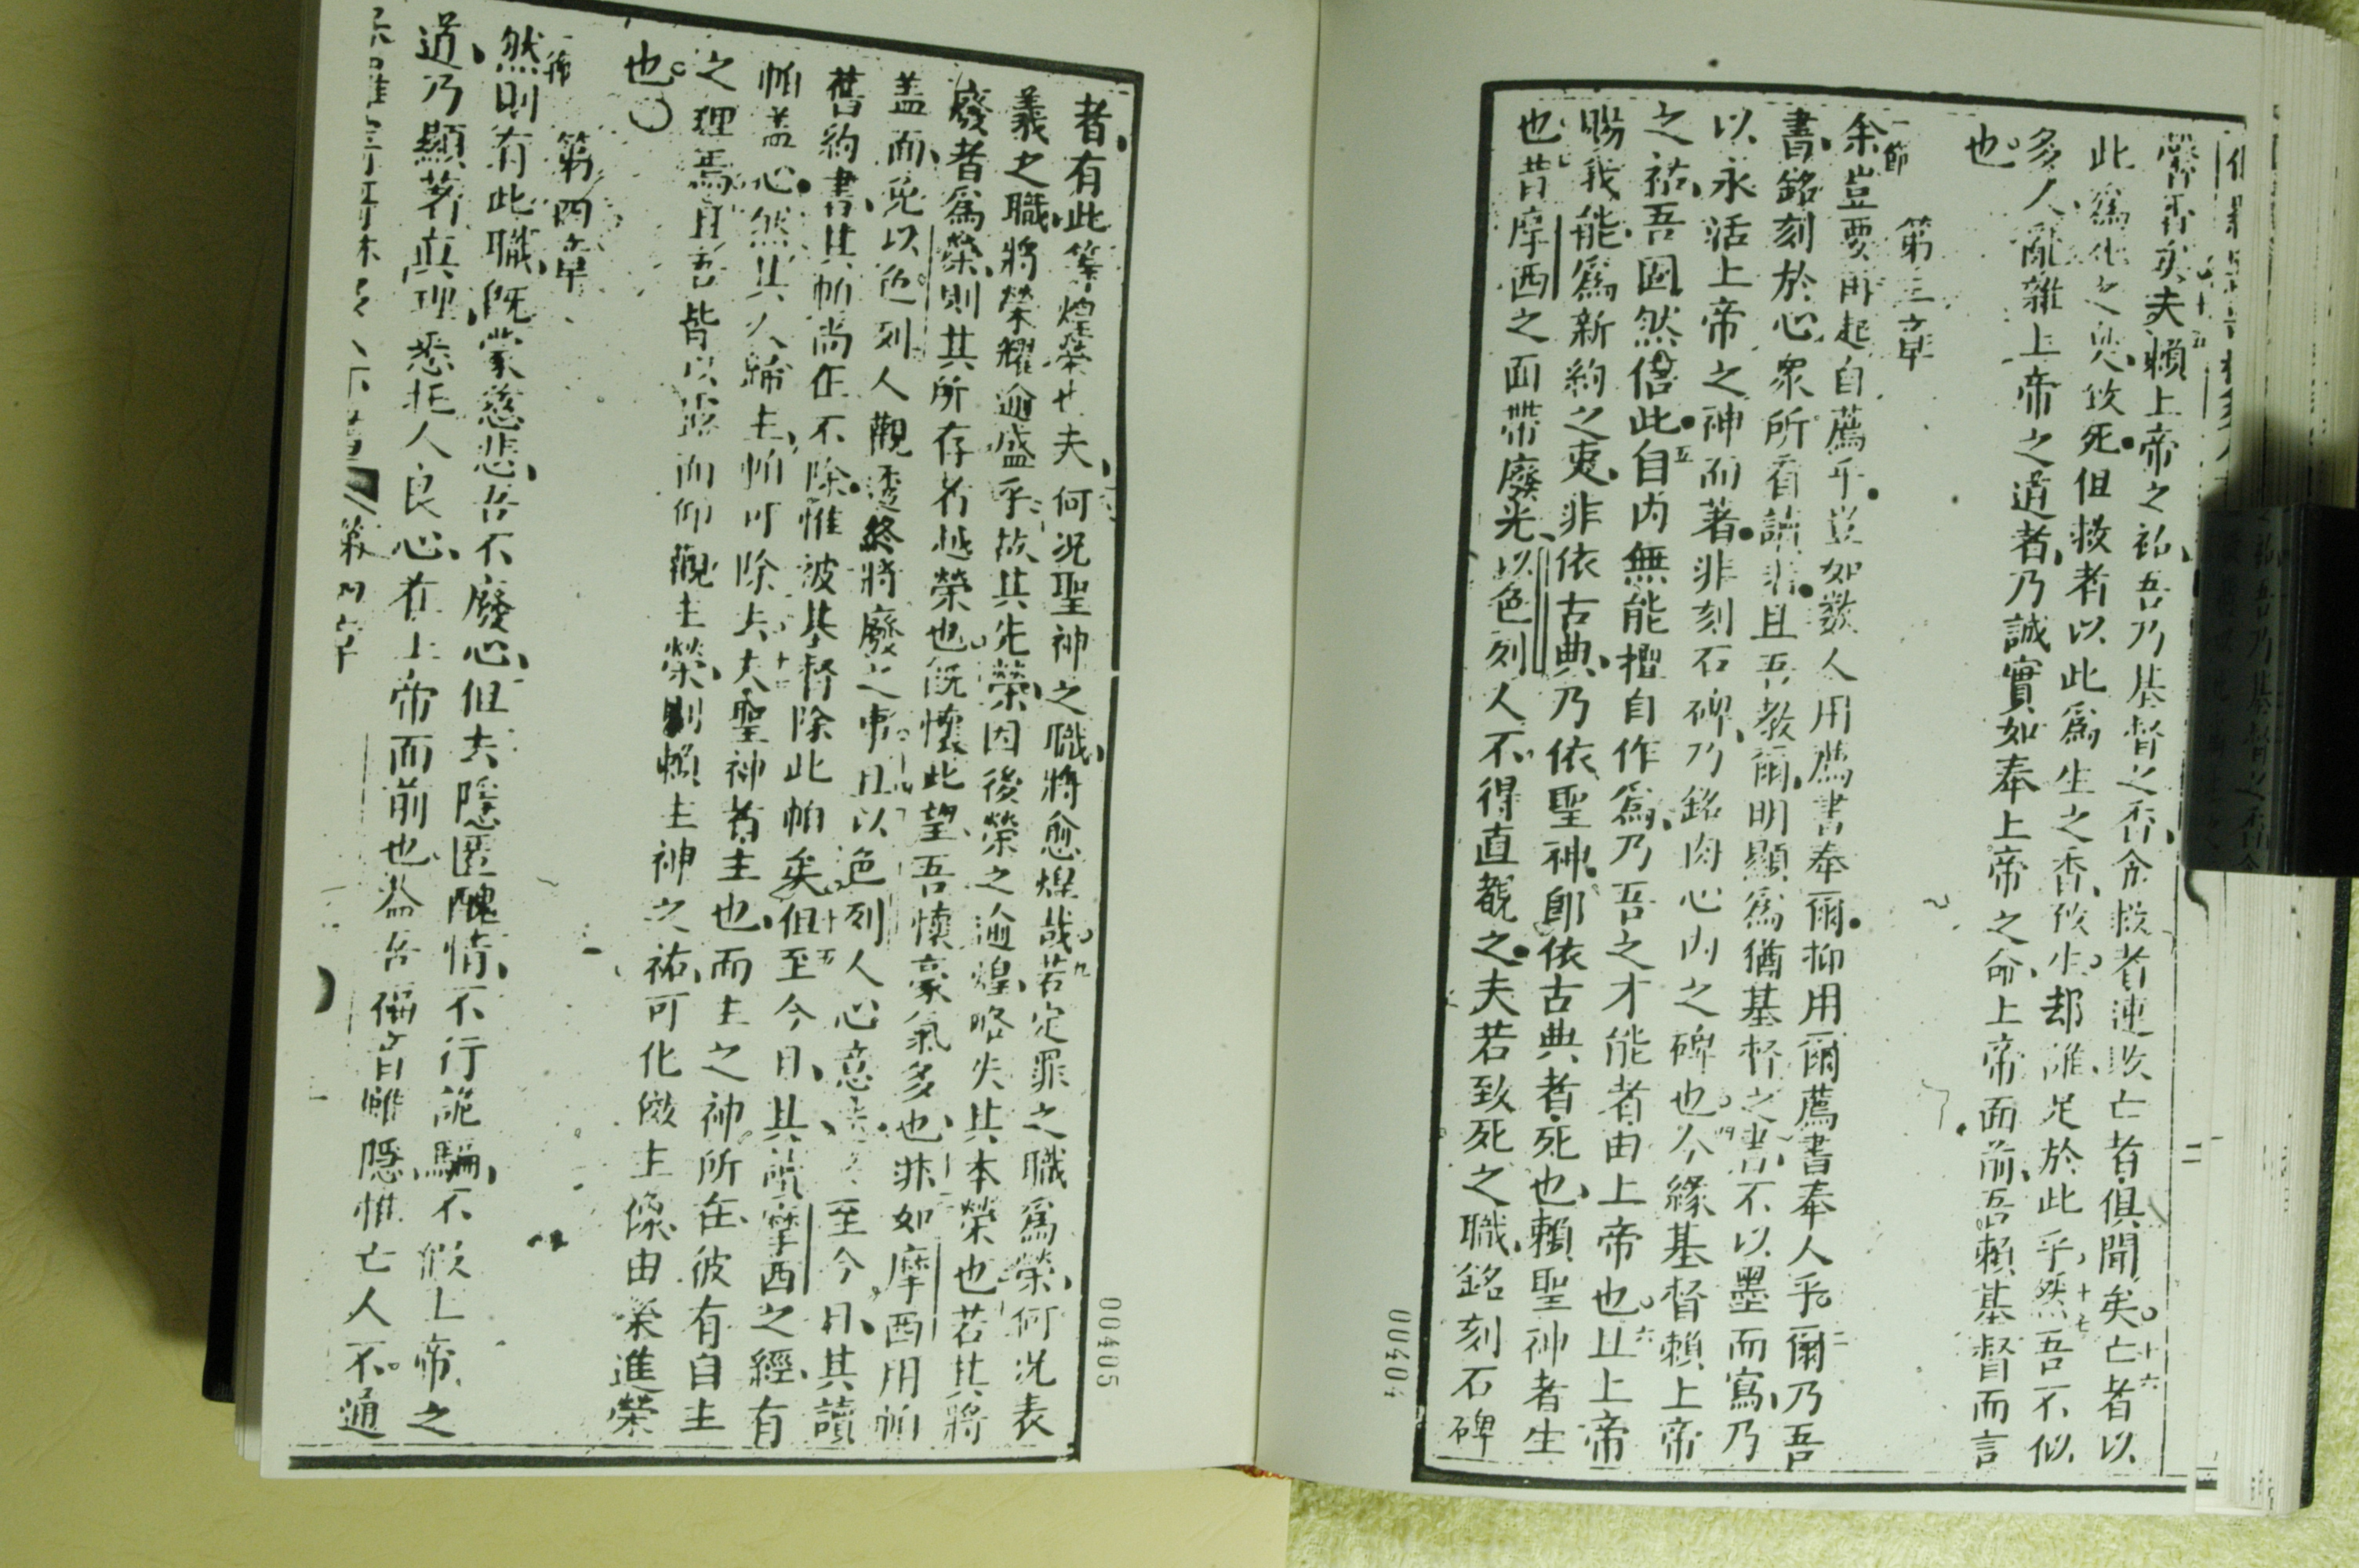 馨香矣夫賴上帝之祐吾乃基督之香令救者連敗亡者俱聞矣亡者以
此爲化之臭致死但救者以此爲生之香致生却誰足於此乎然吾不似
多人亂雜上帝之道者乃誠實如奉上帝之命上帝面前吾賴基督而言
也
第三章
一節
余豈要再起自薦乎豈如数人用薦書奉爾抑用爾薦書奉人乎爾乃吾
書銘刻於心眾所看讀非且吾教爾明顯爲猶基督之書不以墨而寫乃
以永活上帝之神而著非刻石碑乃銘肉心内之碑也今緣基督賴上帝
之祐吾固然信此自内無能擅自作爲乃吾之才能者由上帝也且上帝
賜我能爲新約之吏非依古典乃依聖神卽依古典者死也賴聖神者生
也昔摩西之面帶廢光以色列人不得直觀之夫若致死之職銘刻石碑
00404
者有此等煌榮也夫何況聖神之職將愈煌哉若定罪之職爲榮何況表
義之職將榮耀逾盛乎故其先榮因後榮之逾煌略失其本榮也若其將
廢者爲榮則其所存者越榮也既懷此望吾懷豪氣多也非如摩西用帕
盖面免以色列人觀透終將廢之事且以色列人心意至今日其讀
舊約書其帕尚在不除惟彼基督除此帕矣但至今日其讀摩西之經有
帕盖心然其人歸主帕可除去夫聖神者主也而主之神所在彼有自主
之理焉且吾皆以露面仰觀主榮則賴主神之祐可化倣主像由榮進榮
也
第四章
一節
然則有此職既蒙慈悲吾不廢心但去隱匿醜情不行詭騙不假上帝之
道乃顯著真理悉托人良心在上帝而前也盖吾福音雖隱惟亡人不通
第四章
00405